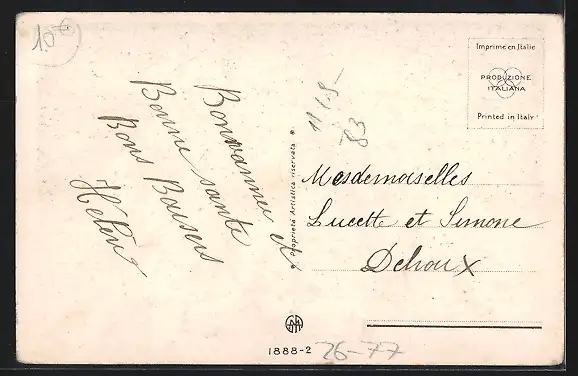 10€
Bonnannee et
Bonne sante
Bons Baisers
Helen
Proprietà Artistica riservata
11/1-8-
83
Imprimé en Italie
PRODUZIONE
ITALIANA
Printed in Italy
Mesdemoiselles
Lucette et Simone
Dehoux
1888-2
26-77